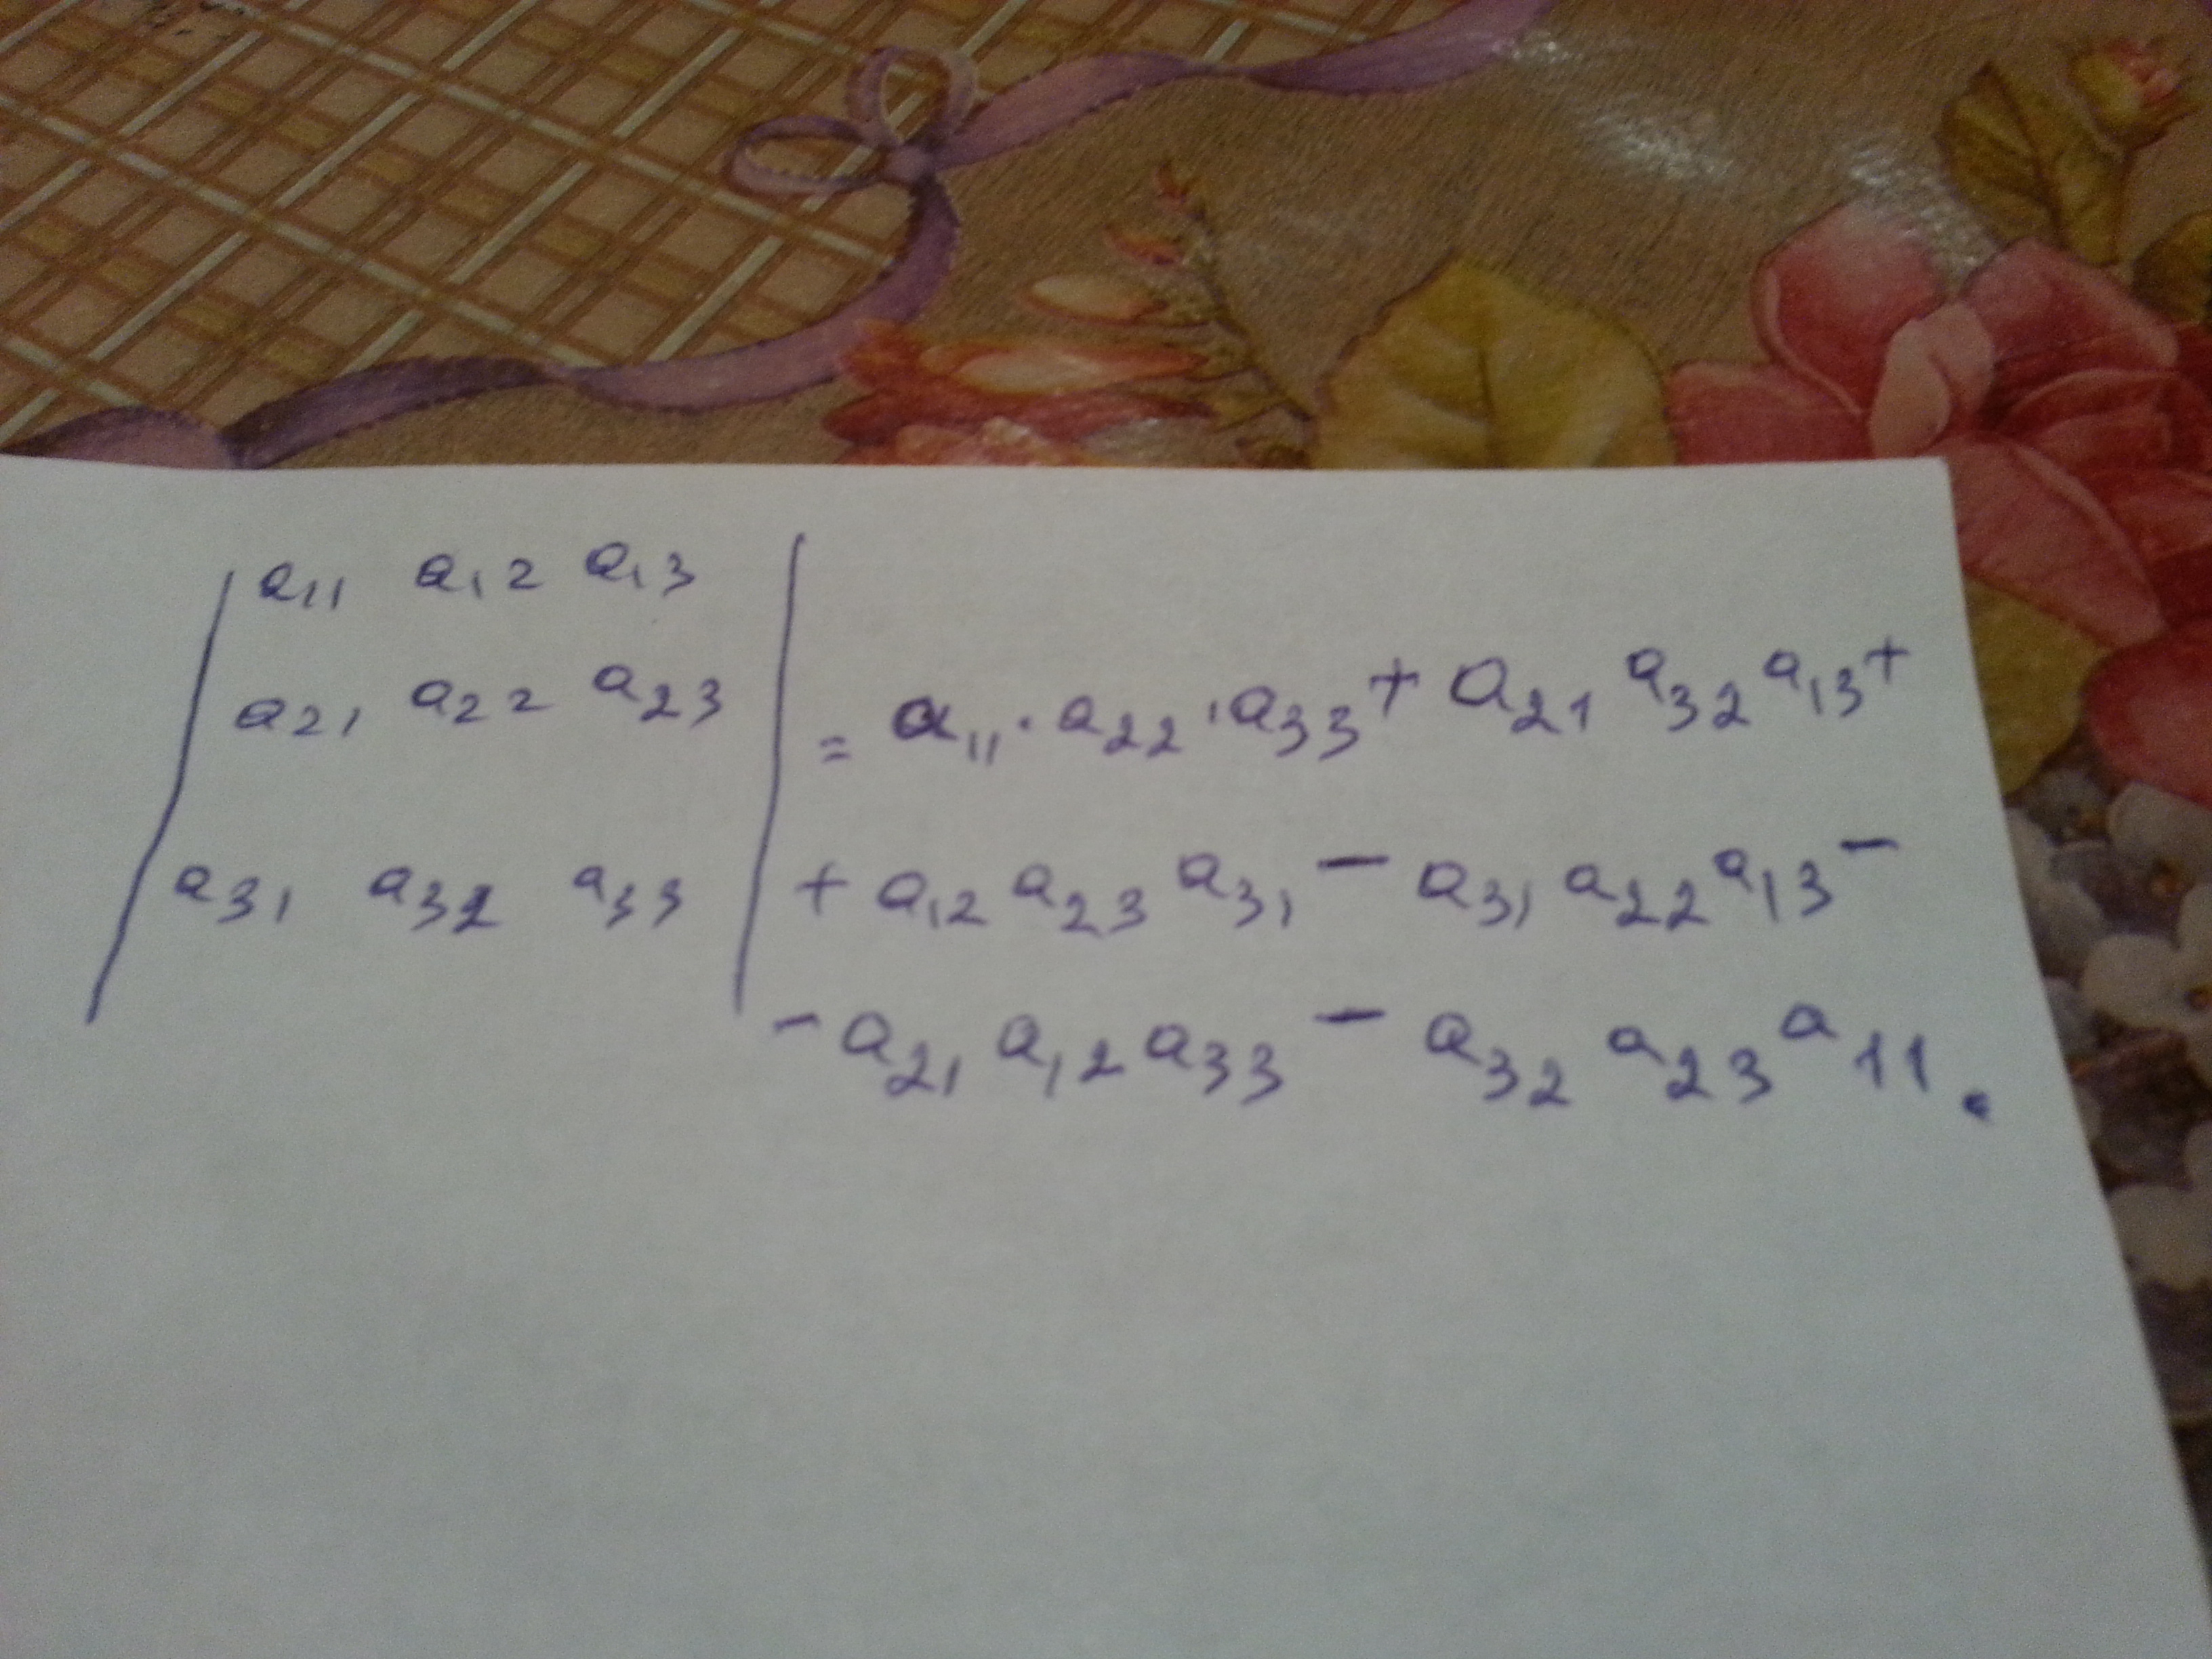 | a₁₁ a₁₂ a₁₃ |
| a₂₁ a₂₂ a₂₃ | = a₁₁ · a₂₂ · a₃₃ + a₂₁ a₃₂ a₁₃ +
| a₃₁ a₃₂ a₃₃ | + a₁₂ a₂₃ a₃₁ − a₃₁ a₂₂ a₁₃ −
− a₂₁ a₁₂ a₃₃ − a₃₂ a₂₃ a₁₁.